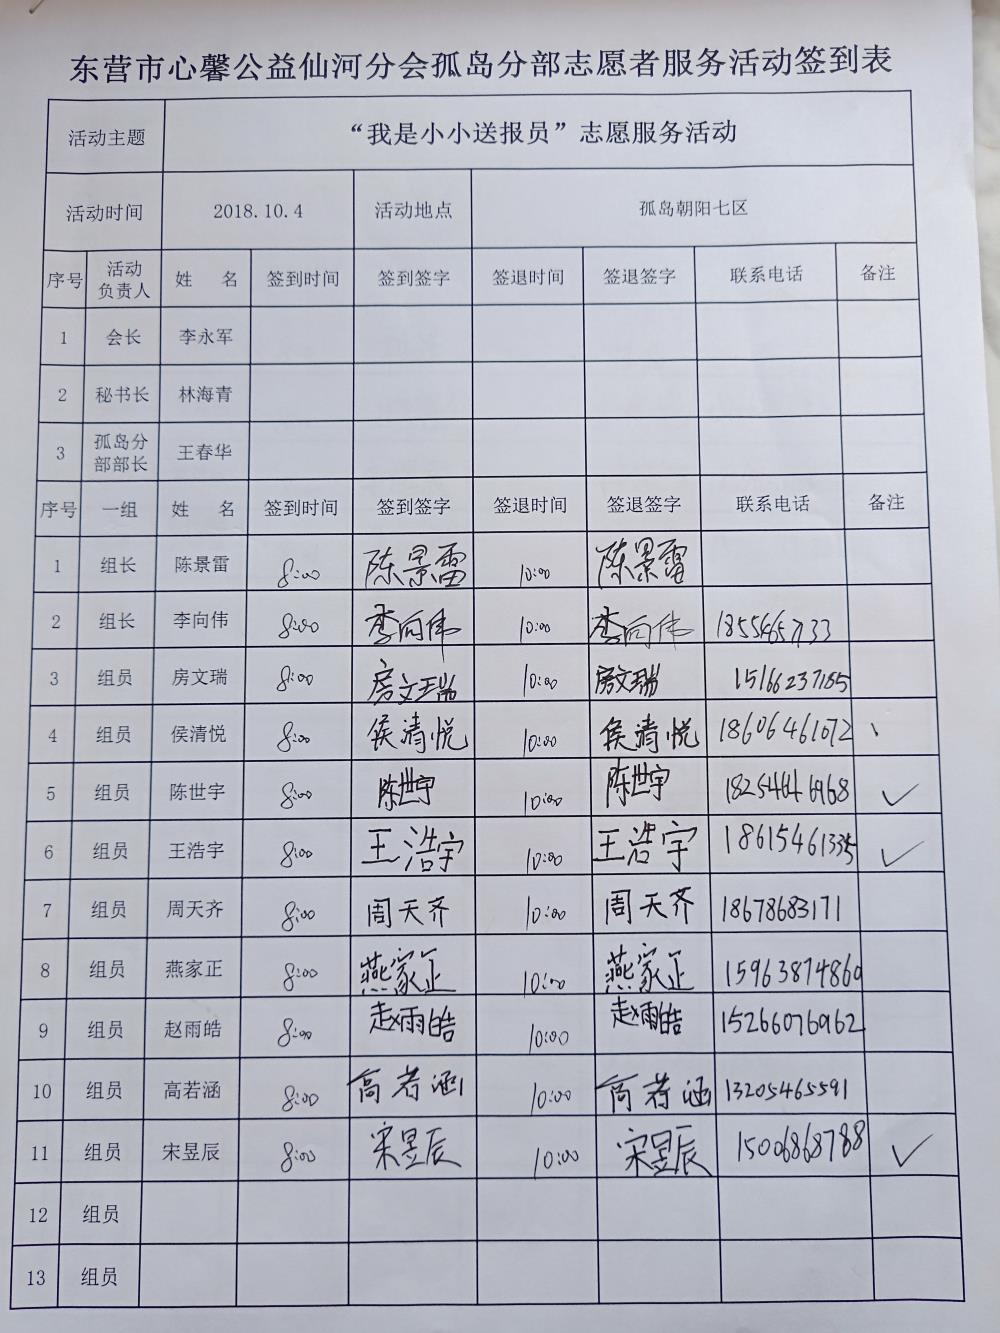 东营市心馨公益仙河分会孤岛分部志愿者服务活动签到表
活动主题 “我是小小送报员”志愿服务活动
活动时间 2018.10.4 活动地点 孤岛朝阳七区
序号 活动负责人 姓 名 签到时间 签到签字 签退时间 签退签字 联系电话 备注
1 会长 李永军
2 秘书长 林海青
3 孤岛分部部长 王春华
序号 一组 姓 名 签到时间 签到签字 签退时间 签退签字 联系电话 备注
1 组长 陈景雷 8:00 陈景雷 10:00 陈景雷
2 组长 李向伟 8:00 李向伟 10:00 李向伟
3 组员 房文瑞 8:00 房文瑞 10:00 房文瑞 15166237185
4 组员 侯清悦 8:00 侯清悦 10:00 侯清悦 18606461072
5 组员 陈世宇 8:00 陈世宇 10:00 陈世宇 18254646968 ✓
6 组员 王浩宇 8:00 王浩宇 10:00 王浩宇 18615461335 ✓
7 组员 周天齐 8:00 周天齐 10:00 周天齐 18678683171
8 组员 燕家正 8:00 燕家正 10:00 燕家正 15963874860
9 组员 赵雨皓 8:00 赵雨皓 10:00 赵雨皓 15266076962
10 组员 高若涵 8:00 高若涵 10:00 高若涵 13205465591
11 组员 宋昱辰 8:00 宋昱辰 10:00 宋昱辰 15006868788 ✓
12 组员
13 组员